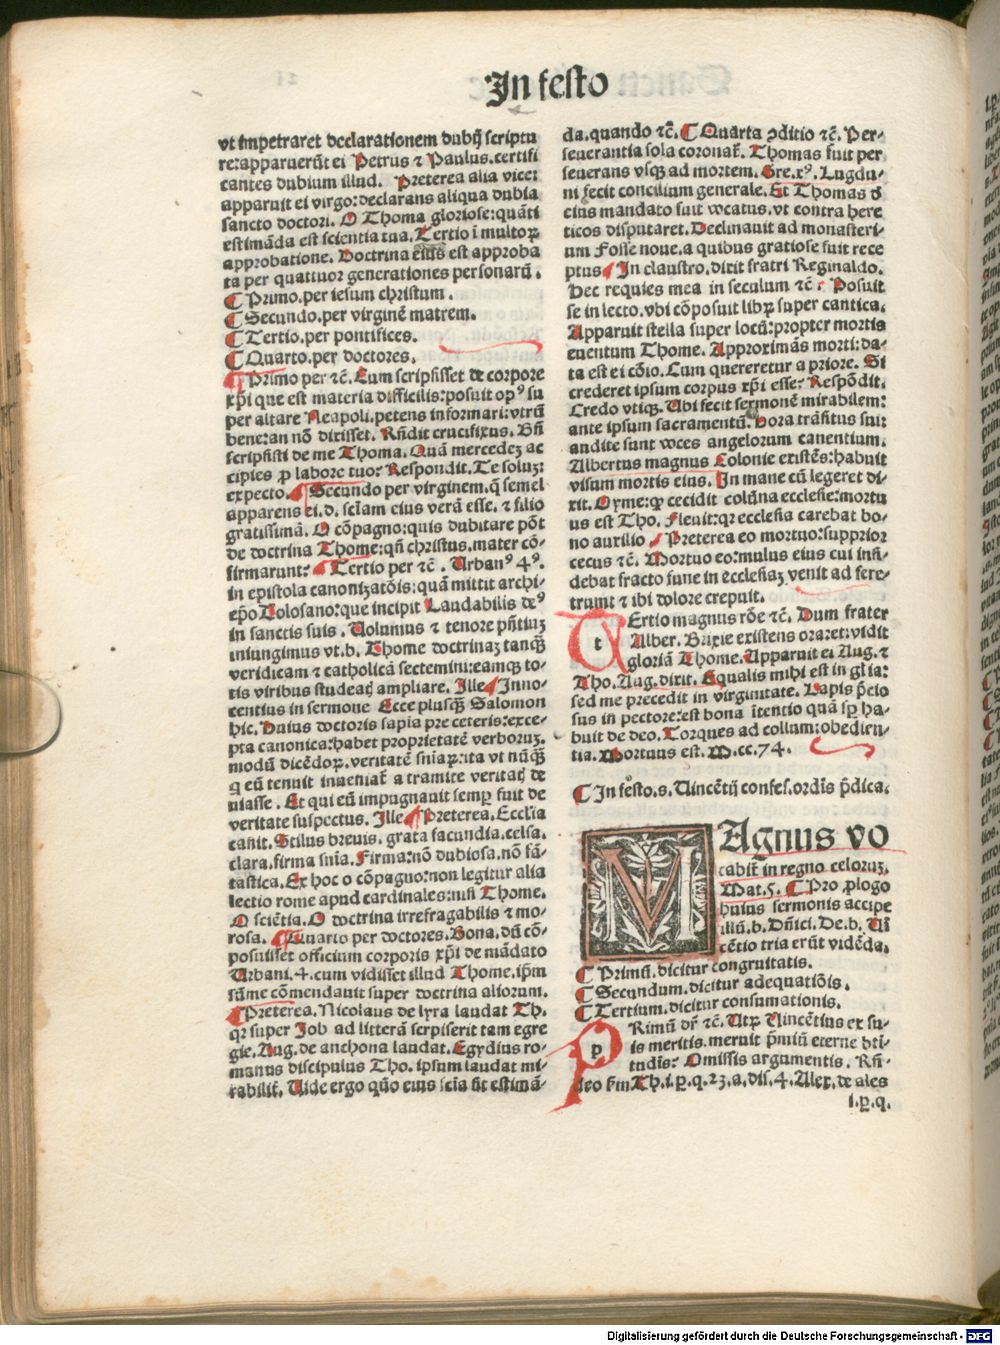 In festo
vt impetraret declarationem dubij scriptu
re: apparuerũt ei Petrus ⁊ Paulus. certifi
cantes dubium illud. Preterea alia vice:
apparuit ei virgo: declarans aliqua dubia
sancto doctori. O Thoma gloriose: quãti
estimãda est scientia tua. Tertio ĩ multoꝝ
approbatione. Doctrina eius est approba
ta per quattuor generationes personarũ.
¶ Primo. per iesum christum.
¶ Secundo. per virginẽ matrem.
¶ Tertio. per pontifices.
¶ Quarto. per doctores.
¶ Primo per ⁊c̃. Cum scripsisset de corpore
xp̃i que est materia difficilis: posuit opꝰ su
per altare Neapoli. petens informari: vtrũ
bene: an nõ dixisset. Rñdit crucifixus. Bñ
scripsisti de me Thoma. Quã mercedeȝ ac
cipies ꝓ labore tuo: Respondit. Te soluȝ:
expecto. ¶ Secundo per virginem. q̃ semel
apparens ei. d. sc̃lam eius verã esse. ⁊ filio
gratissimã. O cõpagno: quis dubitare põt
de doctrina Thome: qñ christus. mater cõ-
firmarunt: ¶ Tertio per ⁊c̃. Urbanꝰ 4ꝰ.
in epistola canonizatõis: quã mittit archi-
ep̃o Tolosano: que incipit Laudabilis deꝰ
in sanctis suis. Uolumus ⁊ tenore pñtiuȝ
iniungimus vt. b. Thome doctrinaȝ tanqȝ̃
veridicam ⁊ catholicã sectemini: eamqȝ to-
tis viribus studeatȷ ampliare. Ille ¶ Inno-
centius in sermone Ecce plusqȝ̃ Salomon
hic. Huius doctoris sapia pre ceteris: exce-
pta canonica: habet proprietatẽ verboruȝ.
modũ dicẽdoꝝ. veritatẽ sniaꝝ: ita vt nũqȝ̃
q eũ tenuit inueniat̃ a tramite veritatȷ de
uiasse. Et qui eũ impugnauit semꝑ fuit de
veritate suspectus. Ille ¶ Preterea. Ecclĩa
cañit. Stilus breuis. grata facundia. celsa.
clara. firma snĩa. Firma: nõ dubiosa. nõ fã-
tastica. Ex hoc o cõpagno: non legitur alia
lectio rome apud cardinales: nisi Thome.
O sciẽtia. O doctrina irrefragabilis ⁊ mo-
rosa. ¶ Quarto per doctores. Bona. dũ cõ-
posuisset officium corporis xp̃i de mãdato
Urbani. 4. cum vidisset illud Thome. ip̃m
sũme cõmendauit super doctrina aliorum.
¶ Preterea. Nicolaus de lyra laudat Th.
qꝛ super Job ad litterã scripserit tam egre
gie. Aug. de anchona laudat. Egydius ro-
manus discipulus Tho. ipsum laudat mi-
rabilit̃. Uide ergo quõ eius scia sit estimã-
da. quando ⁊c̃. ¶ Quarta ꝯditio ⁊c̃. Per-
seuerantia sola coronat̃. Thomas fuit per
seuerans vsqȝ ad mortem. Gre. xꝰ. Lugdu-
ni fecit concilium generale. Et Thomas d̃
eius mandato fuit vocatus. vt contra here
ticos disputaret. Declinauit ad monasteri-
um Fosse noue. a quibus gratiose fuit rece
ptus ¶ In claustro. dixit fratri Reginaldo.
Hec requies mea in seculum ⁊c̃. Posuit
se in lecto. vbi cõposuit libꝝ super cantica.
Apparuit stella super locũ: propter mortis
euentum Thome. Approximãs morti: da-
ta est ei cõio. Cum quereretur a priore. Si
crederet ipsum corpus xp̃i esse: Respõdit.
Credo vtiqȝ. Ubi fecit sermonẽ mirabilem:
ante ipsum sacramentũ. Hora trãsitus sui:
audite sunt voces angelorum canentium.
Albertus magnus Colonie existẽs: habuit
visum mortis eius. In mane cũ legeret di-
xit. Oyme: qꝛ cecidit colũna ecclesie: mortu
us est Tho. Fleuit: qꝛ ecclesia carebat bo-
no auxilio ¶ Preterea eo mortuo: supprior
cecus ⁊c̃. Mortuo eo: mulus eius cui insi-
debat fracto fune in ecclesiaȝ venit ad fere-
trum: ⁊ ibi dolore crepuit.
tErtio magnus rõe ⁊c̃. Dum frater
Alber. Brixie existens oraret: vidit
gloriã Thome. Apparuit ei Aug. ⁊
Tho. Aug. dixit. Equalis mihi est in gl̃ia:
sed me precedit in virginitate. Lapis p̃cio
sus in pectore: est bona ĩtentio quã sꝑ ha-
buit de deo. Torques ad collum: obedien-
tia. Mortuus est. M. cc. 74.
¶ In festo. s. Uincẽtij confes. ordĩs p̃dica.
MAgnus vo
cabit̃ in regno celoruȝ.
Mat. 5. ¶ Pro ꝓlogo
huius sermonis accipe
illũ. b. Dñici. De. b. Ui
cẽtio tria erũt vidẽda.
¶ Primũ. dicitur congruitatis.
¶ Secundum. dicitur adequatiõis.
¶ Tertium. dicitur consumationis.
pRimũ dr̃ ⁊c̃. Utꝝ Uincẽtius ex su-
is meritis. meruit p̃miũ eterne bti-
tudĩs: Omissis argumentis. Rñ-
deo s̃m Th. i. ꝑ. q. 23. a. dis. 4. Alex. de ales
i. ꝑ. q.
Digitalisierung gefördert durch die Deutsche Forschungsgemeinschaft - DFG